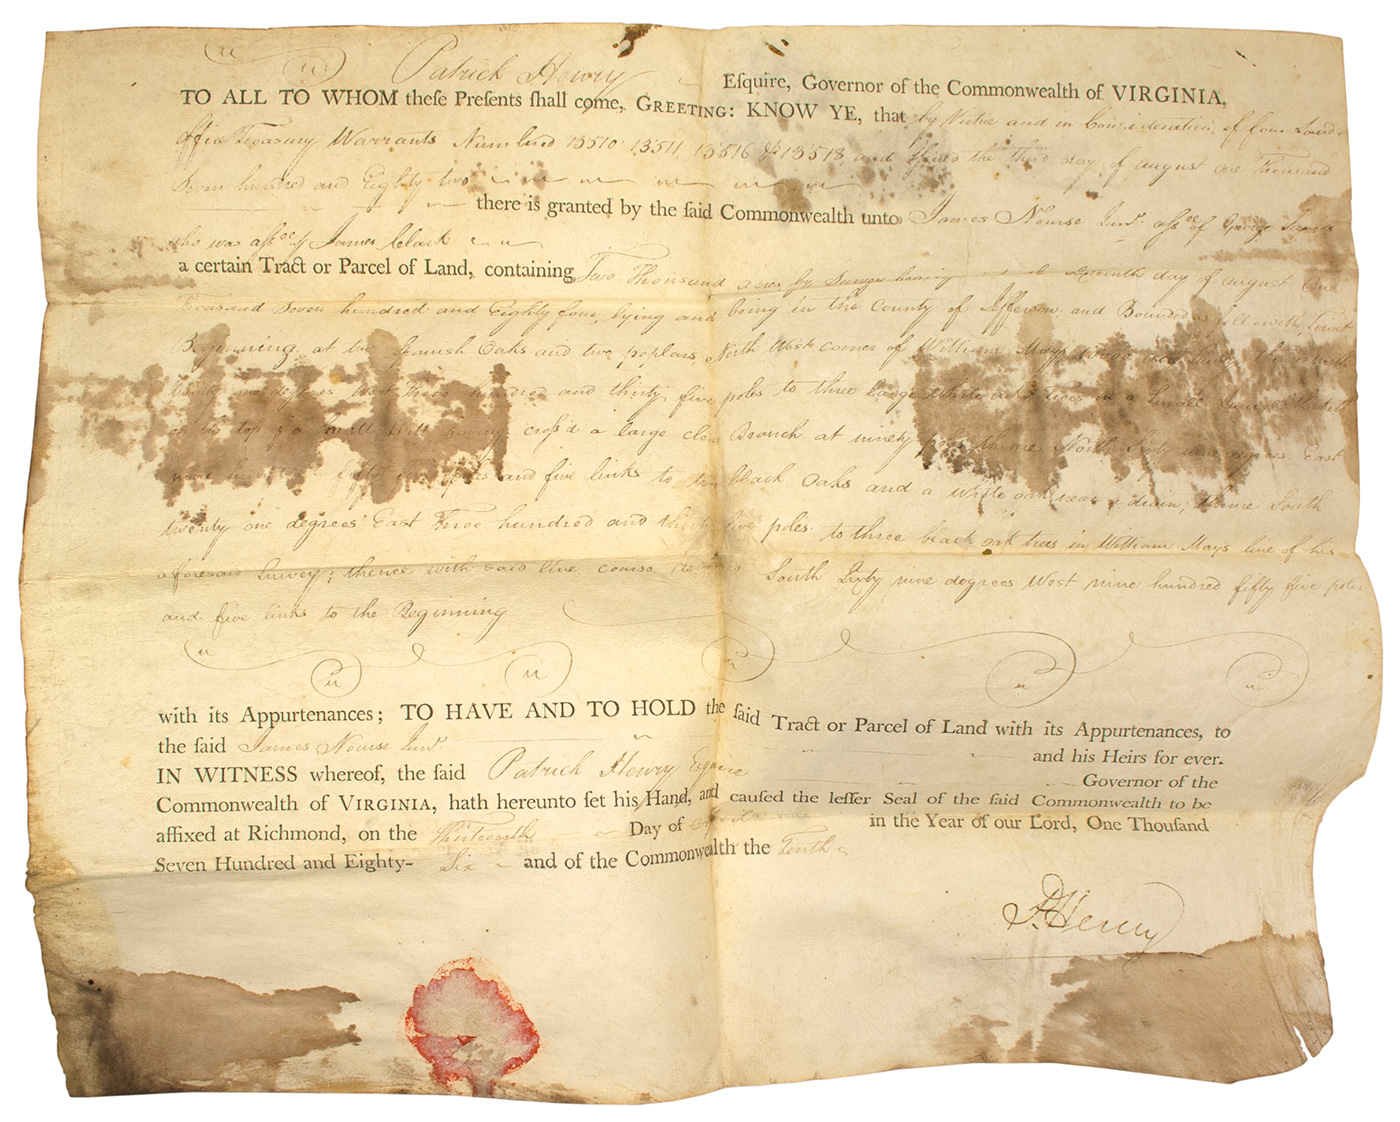 Patrick Henry Eſquire, Governor of the Commonwealth of VIRGINIA,
TO ALL TO WHOM theſe Preſents ſhall come, GREETING: KNOW YE, that by Virtue and in Consideration of four Land
Office Treasury Warrants Numbered 13510 13511, 13516 & 13518 and Issued the third day of august one Thousand
Seven hundred and Eighty two
there is granted by the ſaid Commonwealth unto James Nourse Junr. assee of George
who was assee of James Clark
a certain Tract or Parcel of Land, containing Two Thousand acres by Survey bearing day of august One
Thousand Seven hundred and Eighty four, lying and being in the County of Jefferson and Bounded as followeth, Towit
Beginning at two Spanish Oaks and two poplars, North West corner of William Mays
degrees West Three hundred and thirty five poles to three large White oak Trees in a
on the top of a small Hill having cross'd a large clear Branch at ninety poles thence North Sixty nine degrees East
nine hundred fifty five poles and five links to two black Oaks and a White oak near a drain; thence South
twenty one degrees East Three hundred and thirty five poles to three black oak trees in William Mays line of his
aforesaid Survey; thence with said line course South Sixty nine degrees West nine hundred fifty five poles
and five links to the Beginning
with its Appurtenances; TO HAVE AND TO HOLD the ſaid Tract or Parcel of Land with its Appurtenances, to
the ſaid James Nourse Junr. and his Heirs for ever.
IN WITNESS whereof, the ſaid Patrick Henry Esquire Governor of the
Commonwealth of VIRGINIA, hath hereunto ſet his Hand, and cauſed the leſſer Seal of the ſaid Commonwealth to be
affixed at Richmond, on the Thirteenth Day of April in the Year of our Lord, One Thouſand
Seven Hundred and Eighty- Six and of the Commonwealth the Tenth
P. Henry